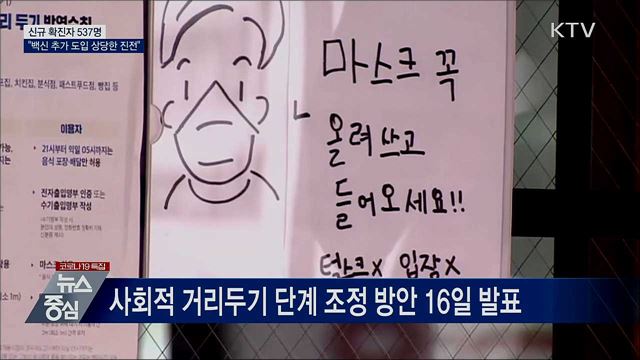 신규 확진자 537명
"백신 추가 도입 상당한 진전"
KTV
리 두기 방역수칙
치킨집, 분식점, 패스트푸드점, 빵집 등
이용자
21시부터 익일 05시까지는
음식 포장·배달만 허용
전자출입명부 인증 또는
수기출입명부 작성
마스크 꼭
올려쓰고
들어오세요!!
턱스크X 입장X
코로나19 특집
뉴스
중심
사회적 거리두기 단계 조정 방안 16일 발표